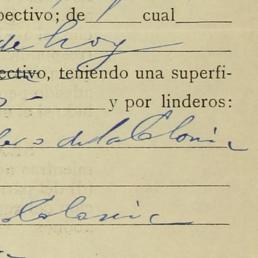 pectivo; de cual
de hoy
ectivo, teniendo una superfi-
y por linderos:
de la Colonia
Colonia